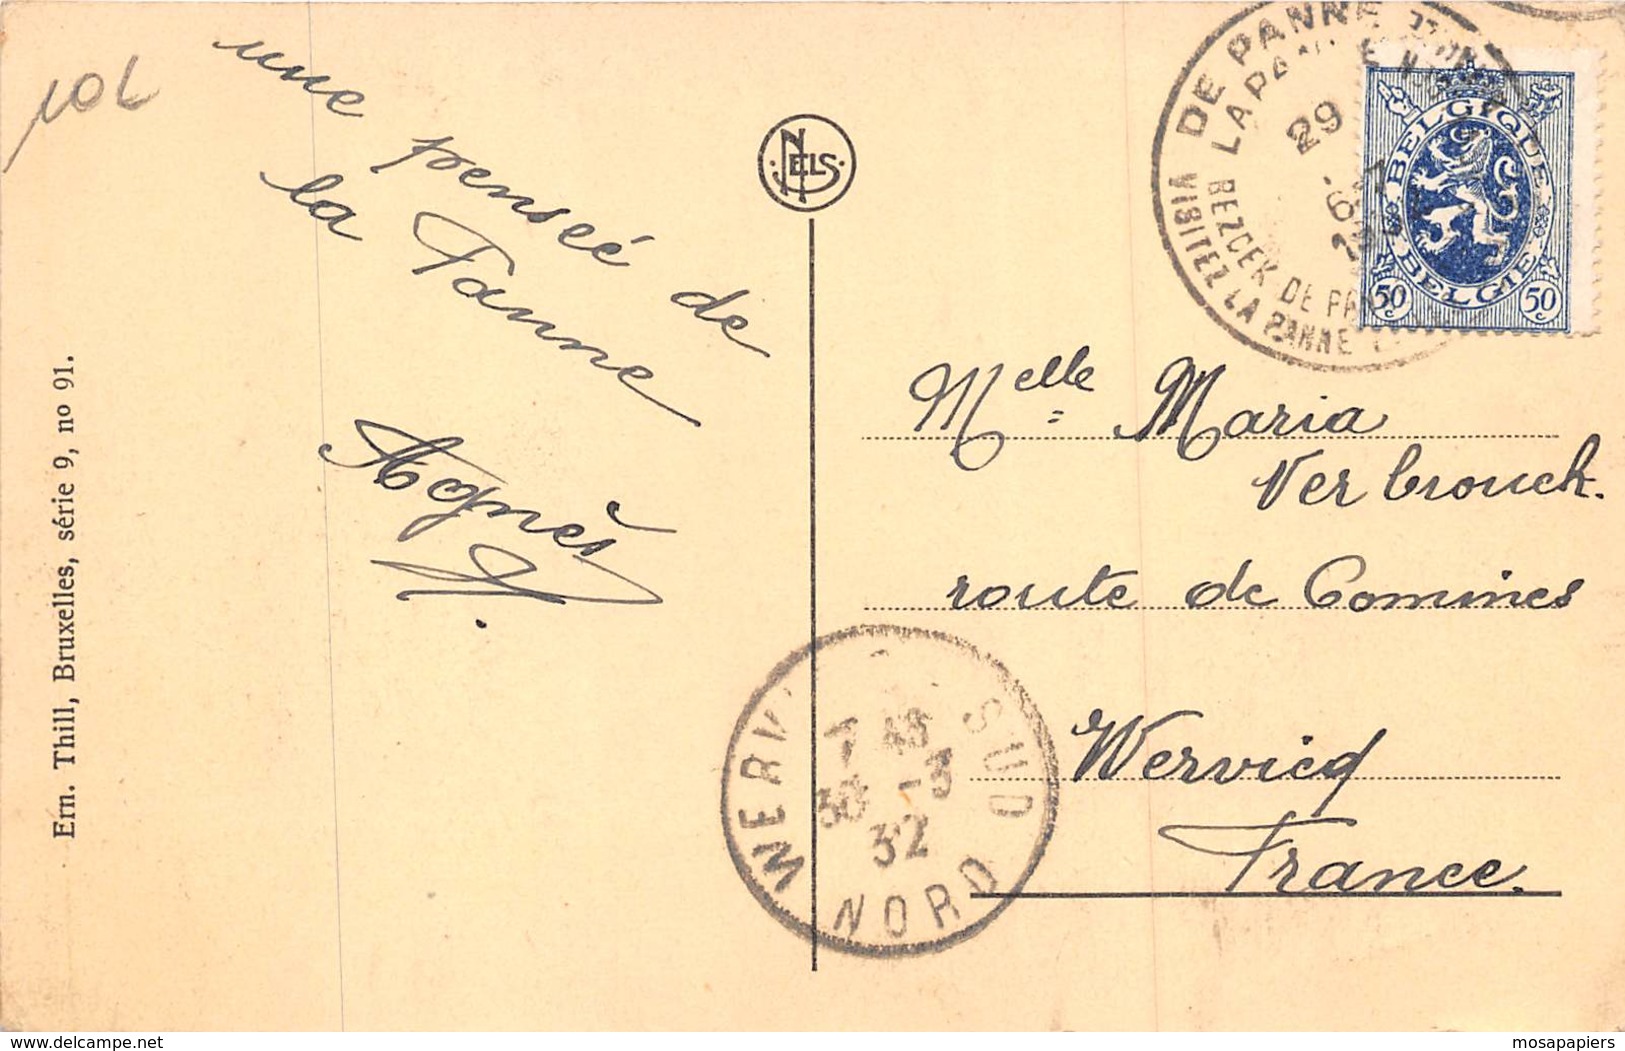 10L
une pensée de
la Panne
Agnès
Ern. Thill, Bruxelles, série 9, no 91.
NELS
DE PANNE
LA PANNE
29
BEZOEK DE PANNE
VISITEZ LA PANNE
BELGIQUE
BELGIE
50 c
50 c
Melle Maria
Verbrouck.
route de Comines
Wervicq
France.
WERV SUD
7 45
30 -3
32
NORD
www.delcampe.net
mosapapiers